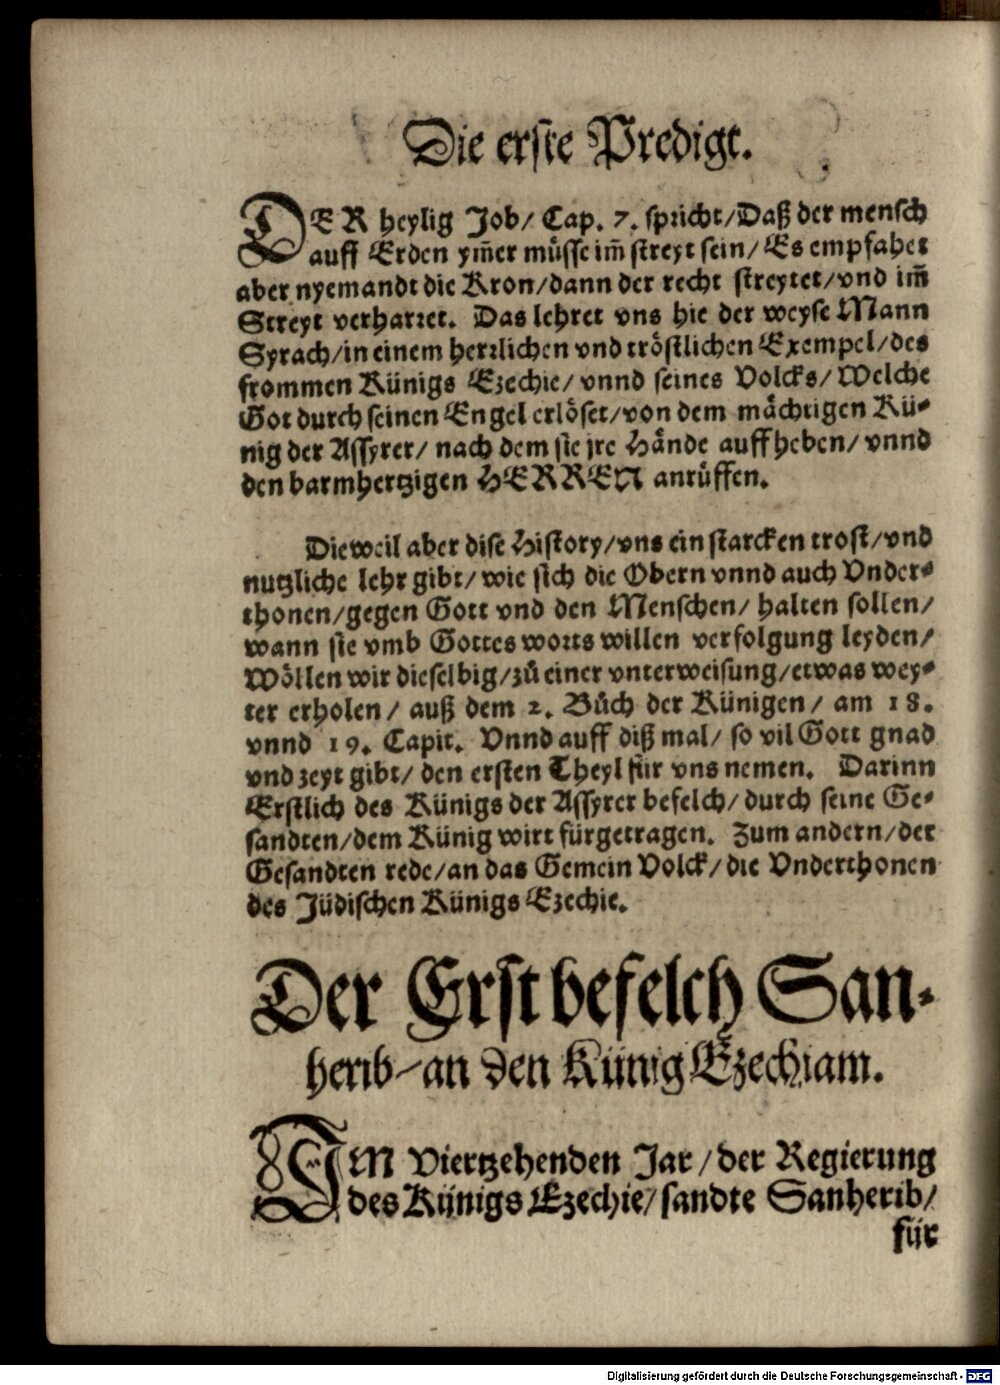 Die erste Predigt.
DER heylig Job/ Cap. 7. spricht/Daß der mensch
auff Erden ym̃er müsse im̃ streyt sein/ Es empfahet
aber nyemandt die Kron/dann der recht streytet/vnd im̃
Streyt verharret. Das lehret vns hie der weyse Mann
Syrach/in einem herrlichen vnd tröstlichen Exempel/des
frommen Künigs Ezechie/ vnnd seines Volcks/ Welche
Got durch seinen Engel erlöset/von dem mächtigen Kü-
nig der Assyrer/ nach dem sie jre Hände auffheben/ vnnd
den barmhertzigen HERREN anrüffen.
Dieweil aber dise History/vns ein starcken trost/vnd
nutzliche lehr gibt/ wie sich die Obern vnnd auch Vnder-
thonen/gegen Gott vnd den Menschen/ halten sollen/
wann sie vmb Gottes worts willen verfolgung leyden/
Wöllen wir dieselbig/zů einer vnterweisung/etwas wey-
ter erholen/ auß dem 2. Bůch der Künigen/ am 18.
vnnd 19. Capit. Vnnd auff diß mal/ so vil Gott gnad
vnd zeyt gibt/ den ersten Theyl für vns nemen. Darinn
Erstlich des Künigs der Assyrer befelch/ durch seine Ge-
sandten/dem Künig wirt fürgetragen. Zum andern/der
Gesandten rede/an das Gemein Volck/ die Vnderthonen
des Jüdischen Künigs Ezechie.
Der Erst befelch San-
herib/ an den Künig Ezechiam.
IM Viertzehenden Jar/der Regierung
des Künigs Ezechie/ sandte Sanherib/
für
Digitalisierung gefördert durch die Deutsche Forschungsgemeinschaft - DFG